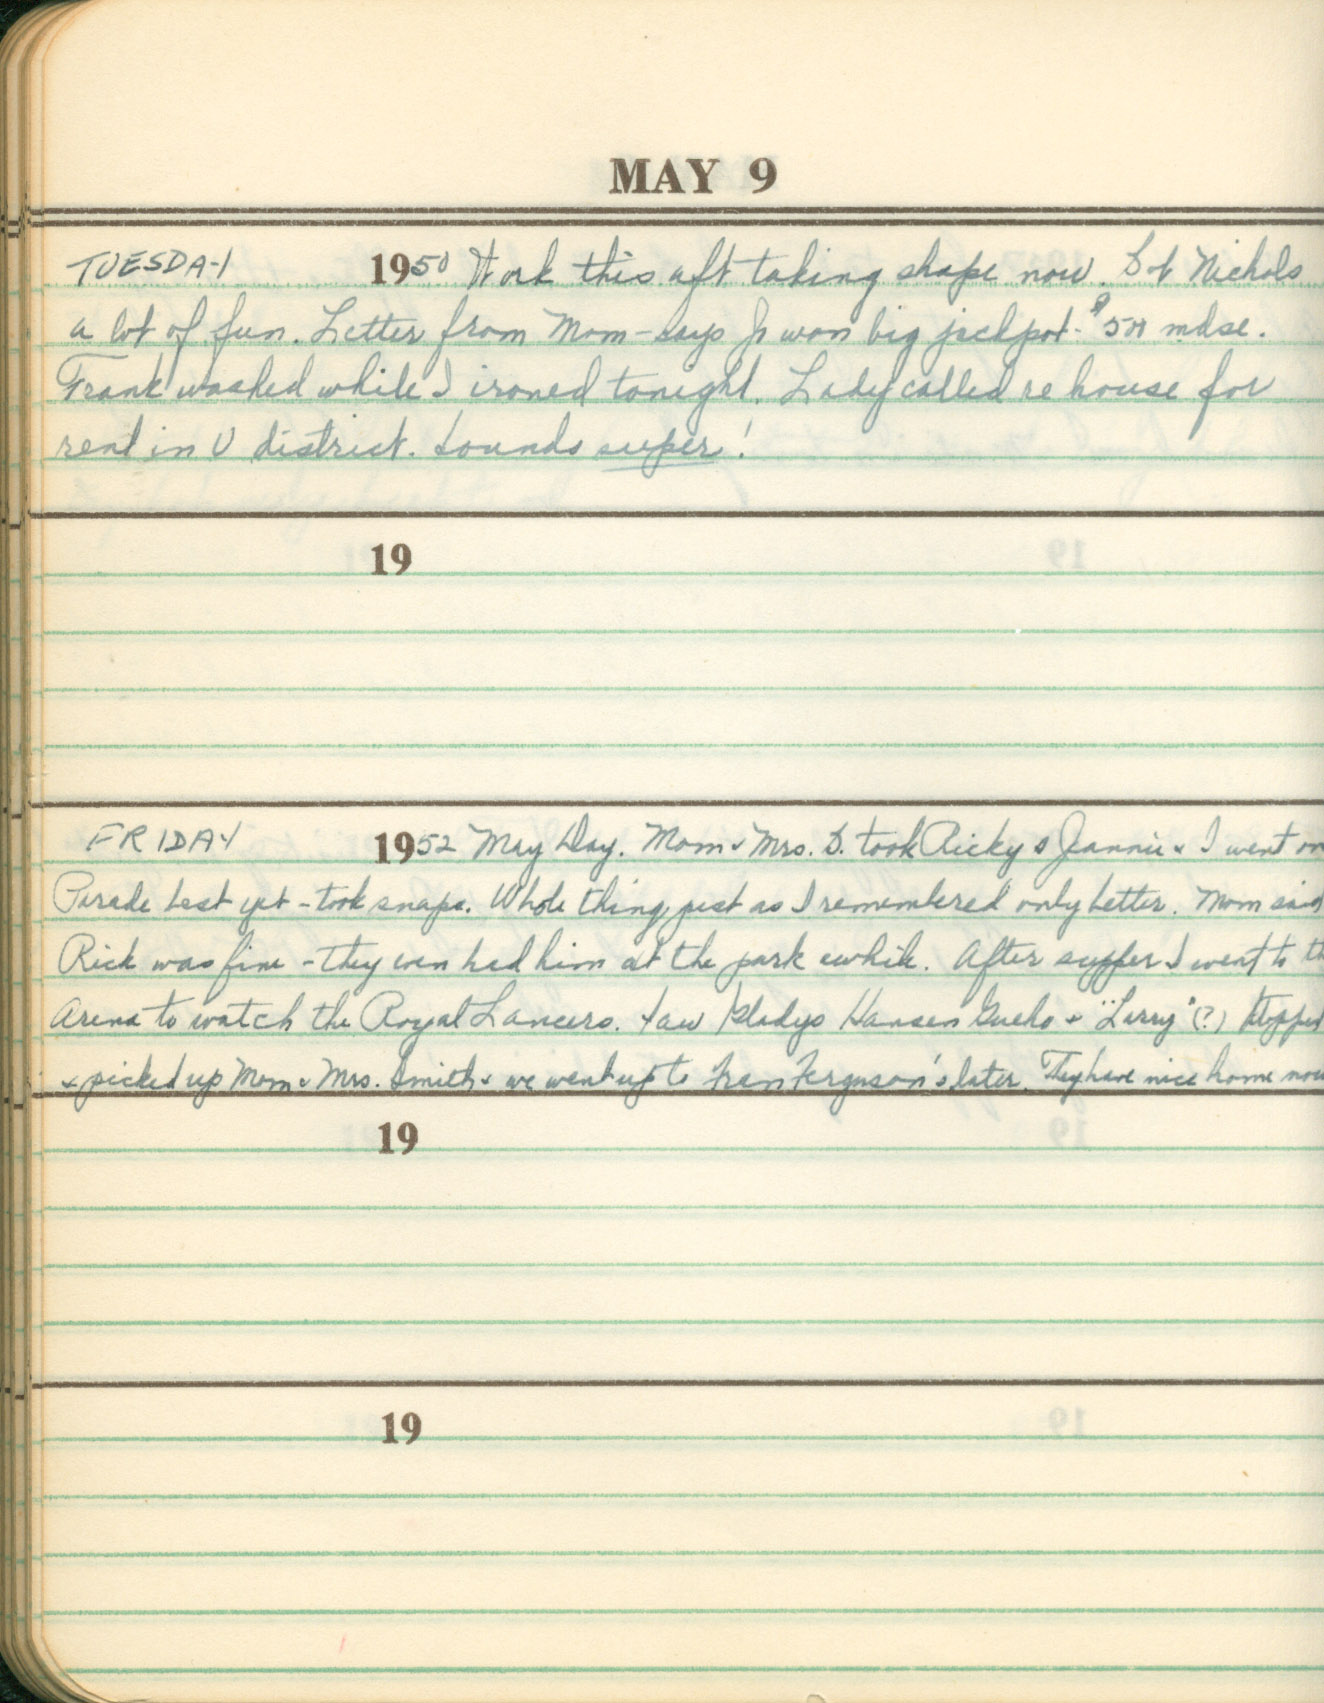 MAY 9
TUESDAY 1950 Work this aft taking shape now. Dot Nichols
a lot of fun. Letter from Mom - says Jr won big jackpot - mdse.
Frank washed while I ironed tonight. Lady called re house for
rent in U district. Sounds super!
19
FRIDAY 1952 May Day. Mom & Mrs. D. took Ricky & Jeannie & I went on
Parade best yet - took snaps. Whole thing just as I remembered only better. Mom said
Rick was fine - they even had him at the park awhile. After supper I went to th
Arena to watch the Royal Lancers. Saw Gladys Hansen & "Larry" (?) Stopped
& picked up Mom & Mrs. Smith & we went up to Fran Ferguson's later. They have nice home now
19
19